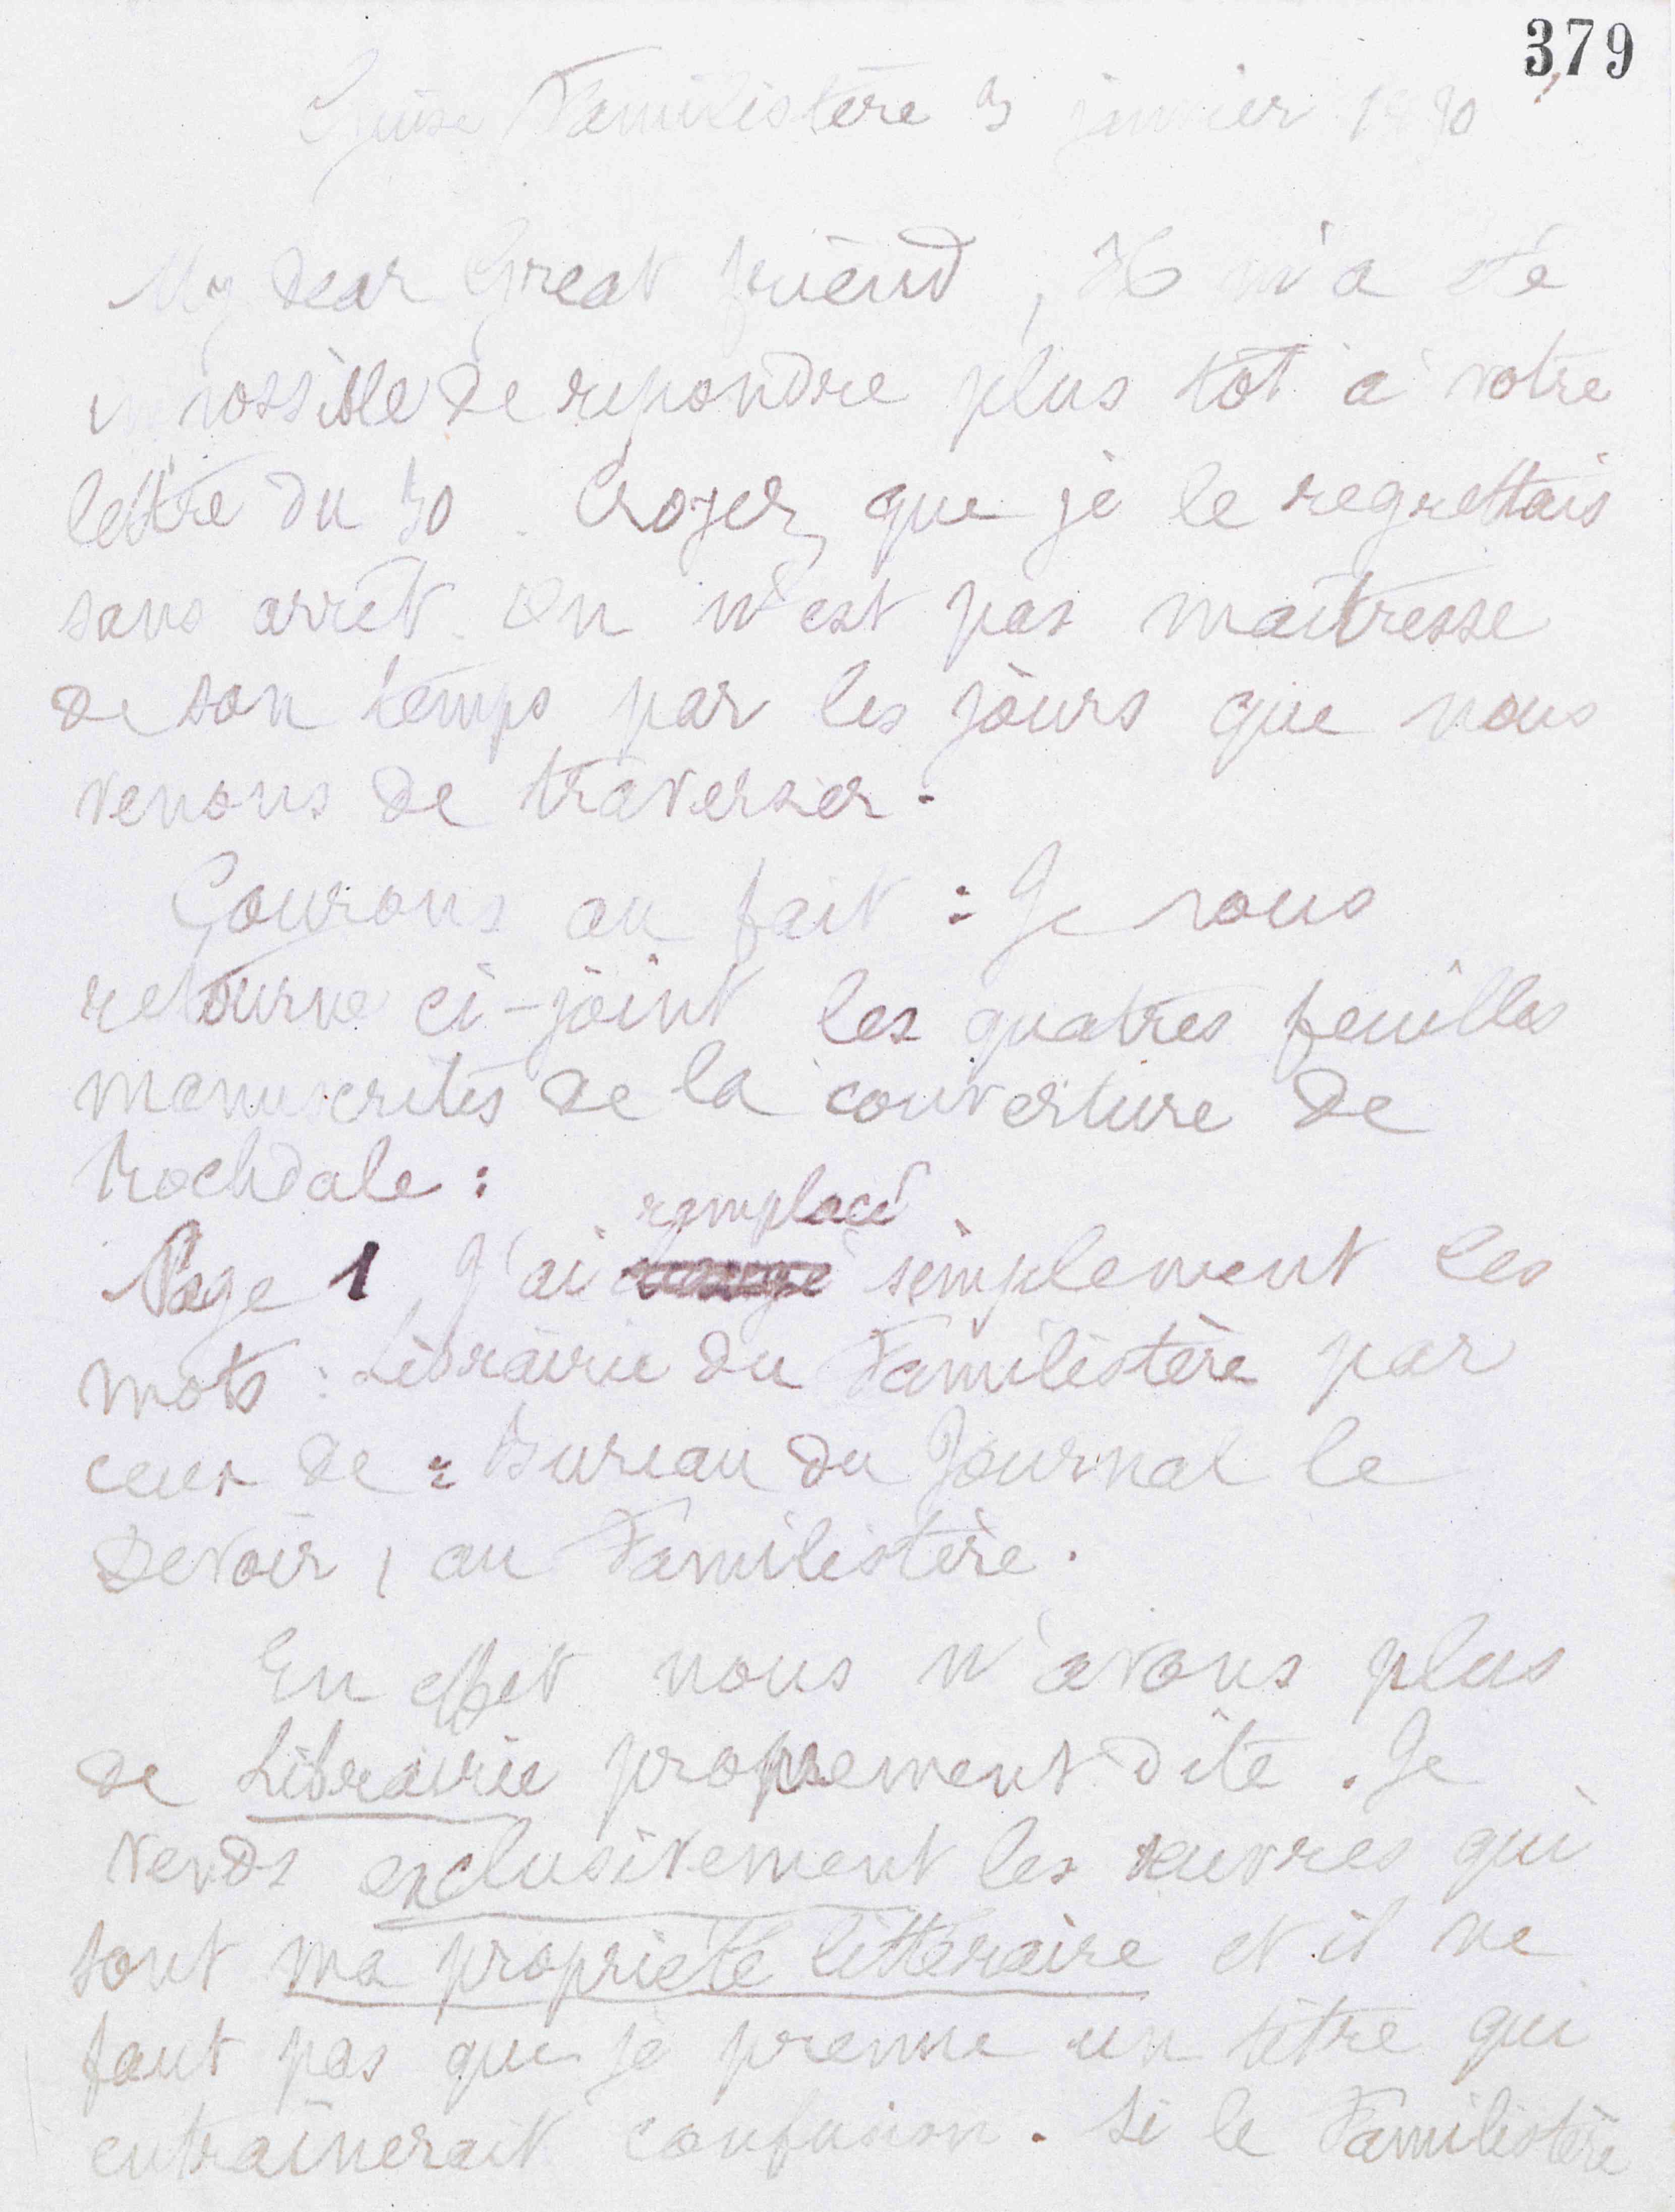 379
Guise Familistère 3 janvier 1890
My dear Great friend, Il m'a été
impossible de repondre plus tôt à votre
lettre du 30. Croyez que je le regrettais
sans arrêt. On n'est pas maîtresse
de son temps par les jours que nous
venons de traverser.
Courons au fait : Je vous
retourne ci-joint les quatres feuilles
manuscrites de la couverture de
Rochdale :
remplacé
Page 1 J'ai changé simplement les
mots : Librairie du Familistère par
ceux de : Bureau du Journal le
Devoir, au Familistère.
En effet nous n'avons plus
de Librairie proprement dite. Je
vends exclusivement les œuvres qui
sont ma propriété littéraire et il ne
faut pas que je prenne un titre qui
entraînerait confusion. Si le Familistère